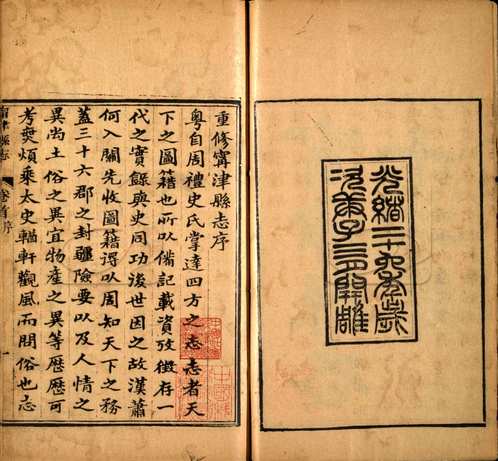 光緒二十六年歲
次庚子三月開雕
重修寗津縣志序
粵自周禮史氏掌達四方之志志者天
下之圖籍也所以備記載資攷徵存一
代之實錄與史同功後世因之故漢蕭
何入關先收圖籍得以周知天下之務
蓋三十六郡之封疆險要以及人情之
異尚土俗之異宜物產之異等歷歷可
考奚煩乘太史輶軒觀風而問俗也志
津縣志
卷首序
一